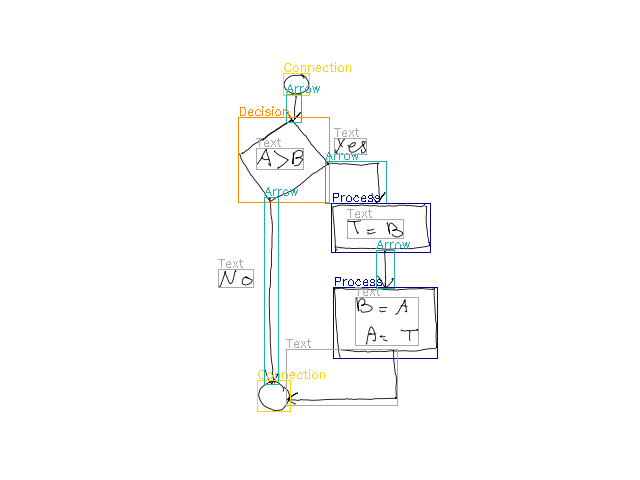 Connection
Arrow
Decision
Text
A>B
Text
Yes
Arrow
Process
Text
T = B
Arrow
Arrow
Text
No
Process
Text
B = A
A = T
Text
Connection